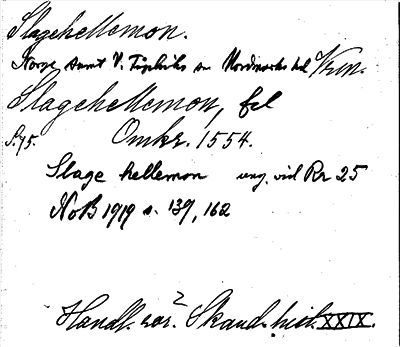 Slagehellemon.
Norge samt V. Fryksds o Nordmarks hd Vrm.
Slagehellemon, fel
S. 75. Omkr. 1554.
Slage hellemon ung. vid Rr 25
NoB 1919 s. 139, 162
Handl. rör. 2 Skand. hist. XXIX.